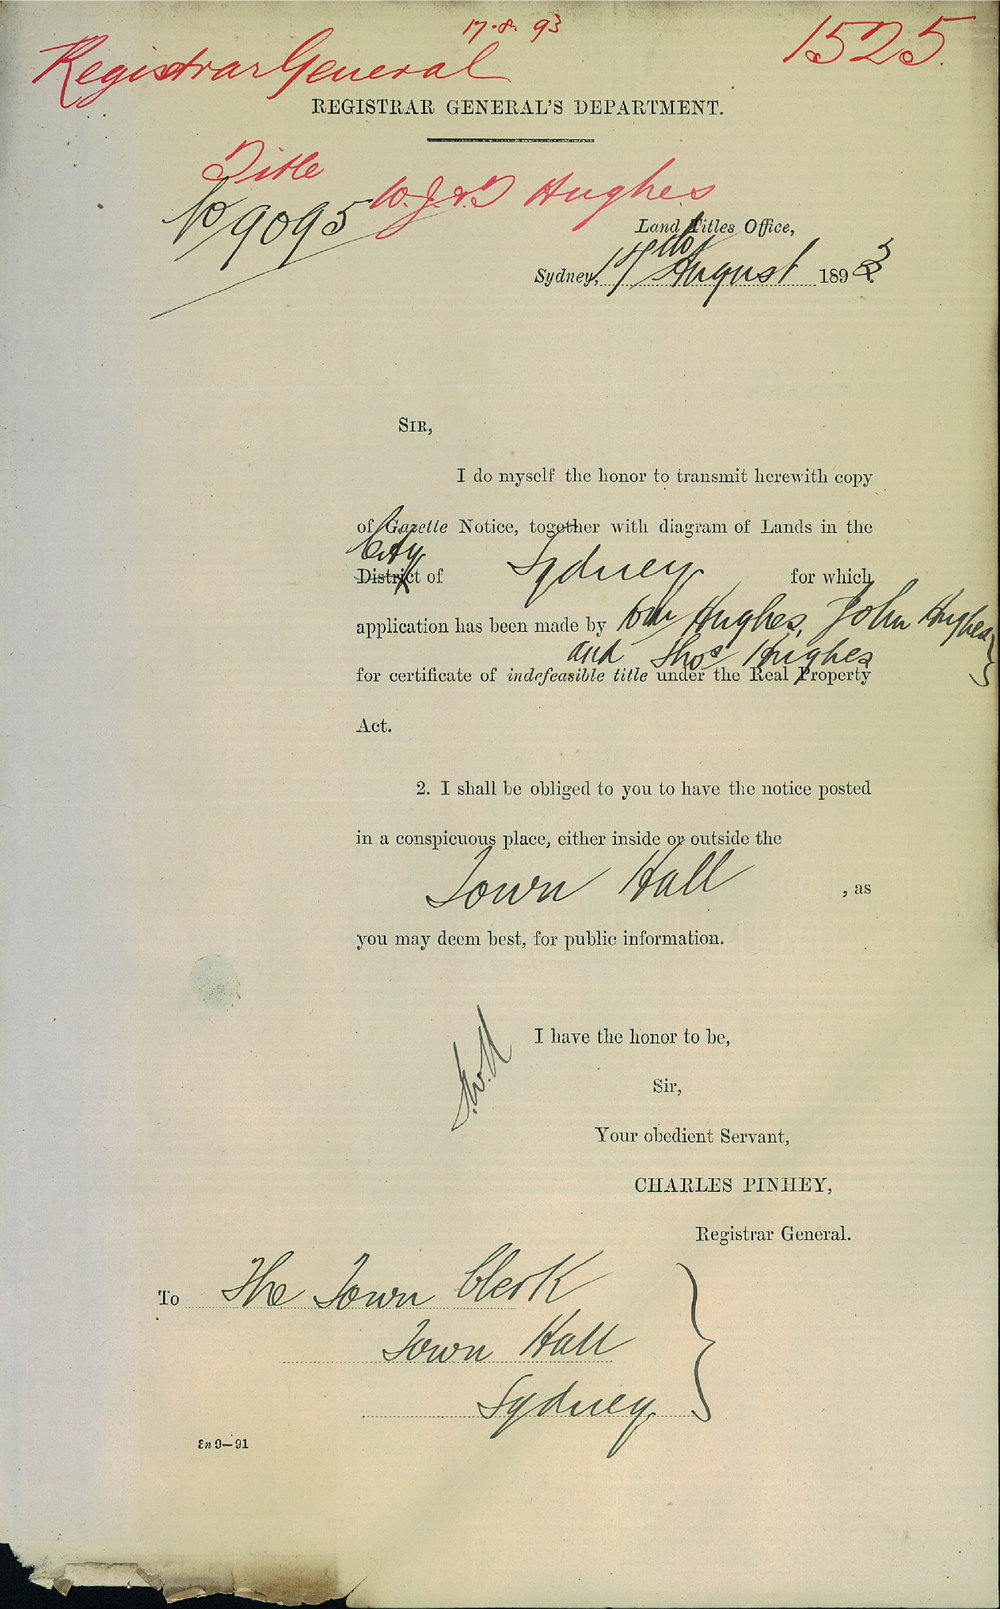 17.8.93
1525.
Registrar General
REGISTRAR GENERAL'S DEPARTMENT.
Title
W. J. & T Hughes
No 9095
Land Titles Office,
Sydney, 17th August 1893
SIR,
I do myself the honor to transmit herewith copy
of Gazette Notice, together with diagram of Lands in the
City
District of Sydney for which
application has been made by Wm Hughes, John Hughes
and Thos Hughes
for certificate of indefeasible title under the Real Property
Act.
2. I shall be obliged to you to have the notice posted
in a conspicuous place, either inside or outside the
Town Hall , as
you may deem best, for public information.
I have the honor to be,
Sir,
Your obedient Servant,
CHARLES PINHEY,
Registrar General.
To The Town Clerk
Town Hall
Sydney
9—91